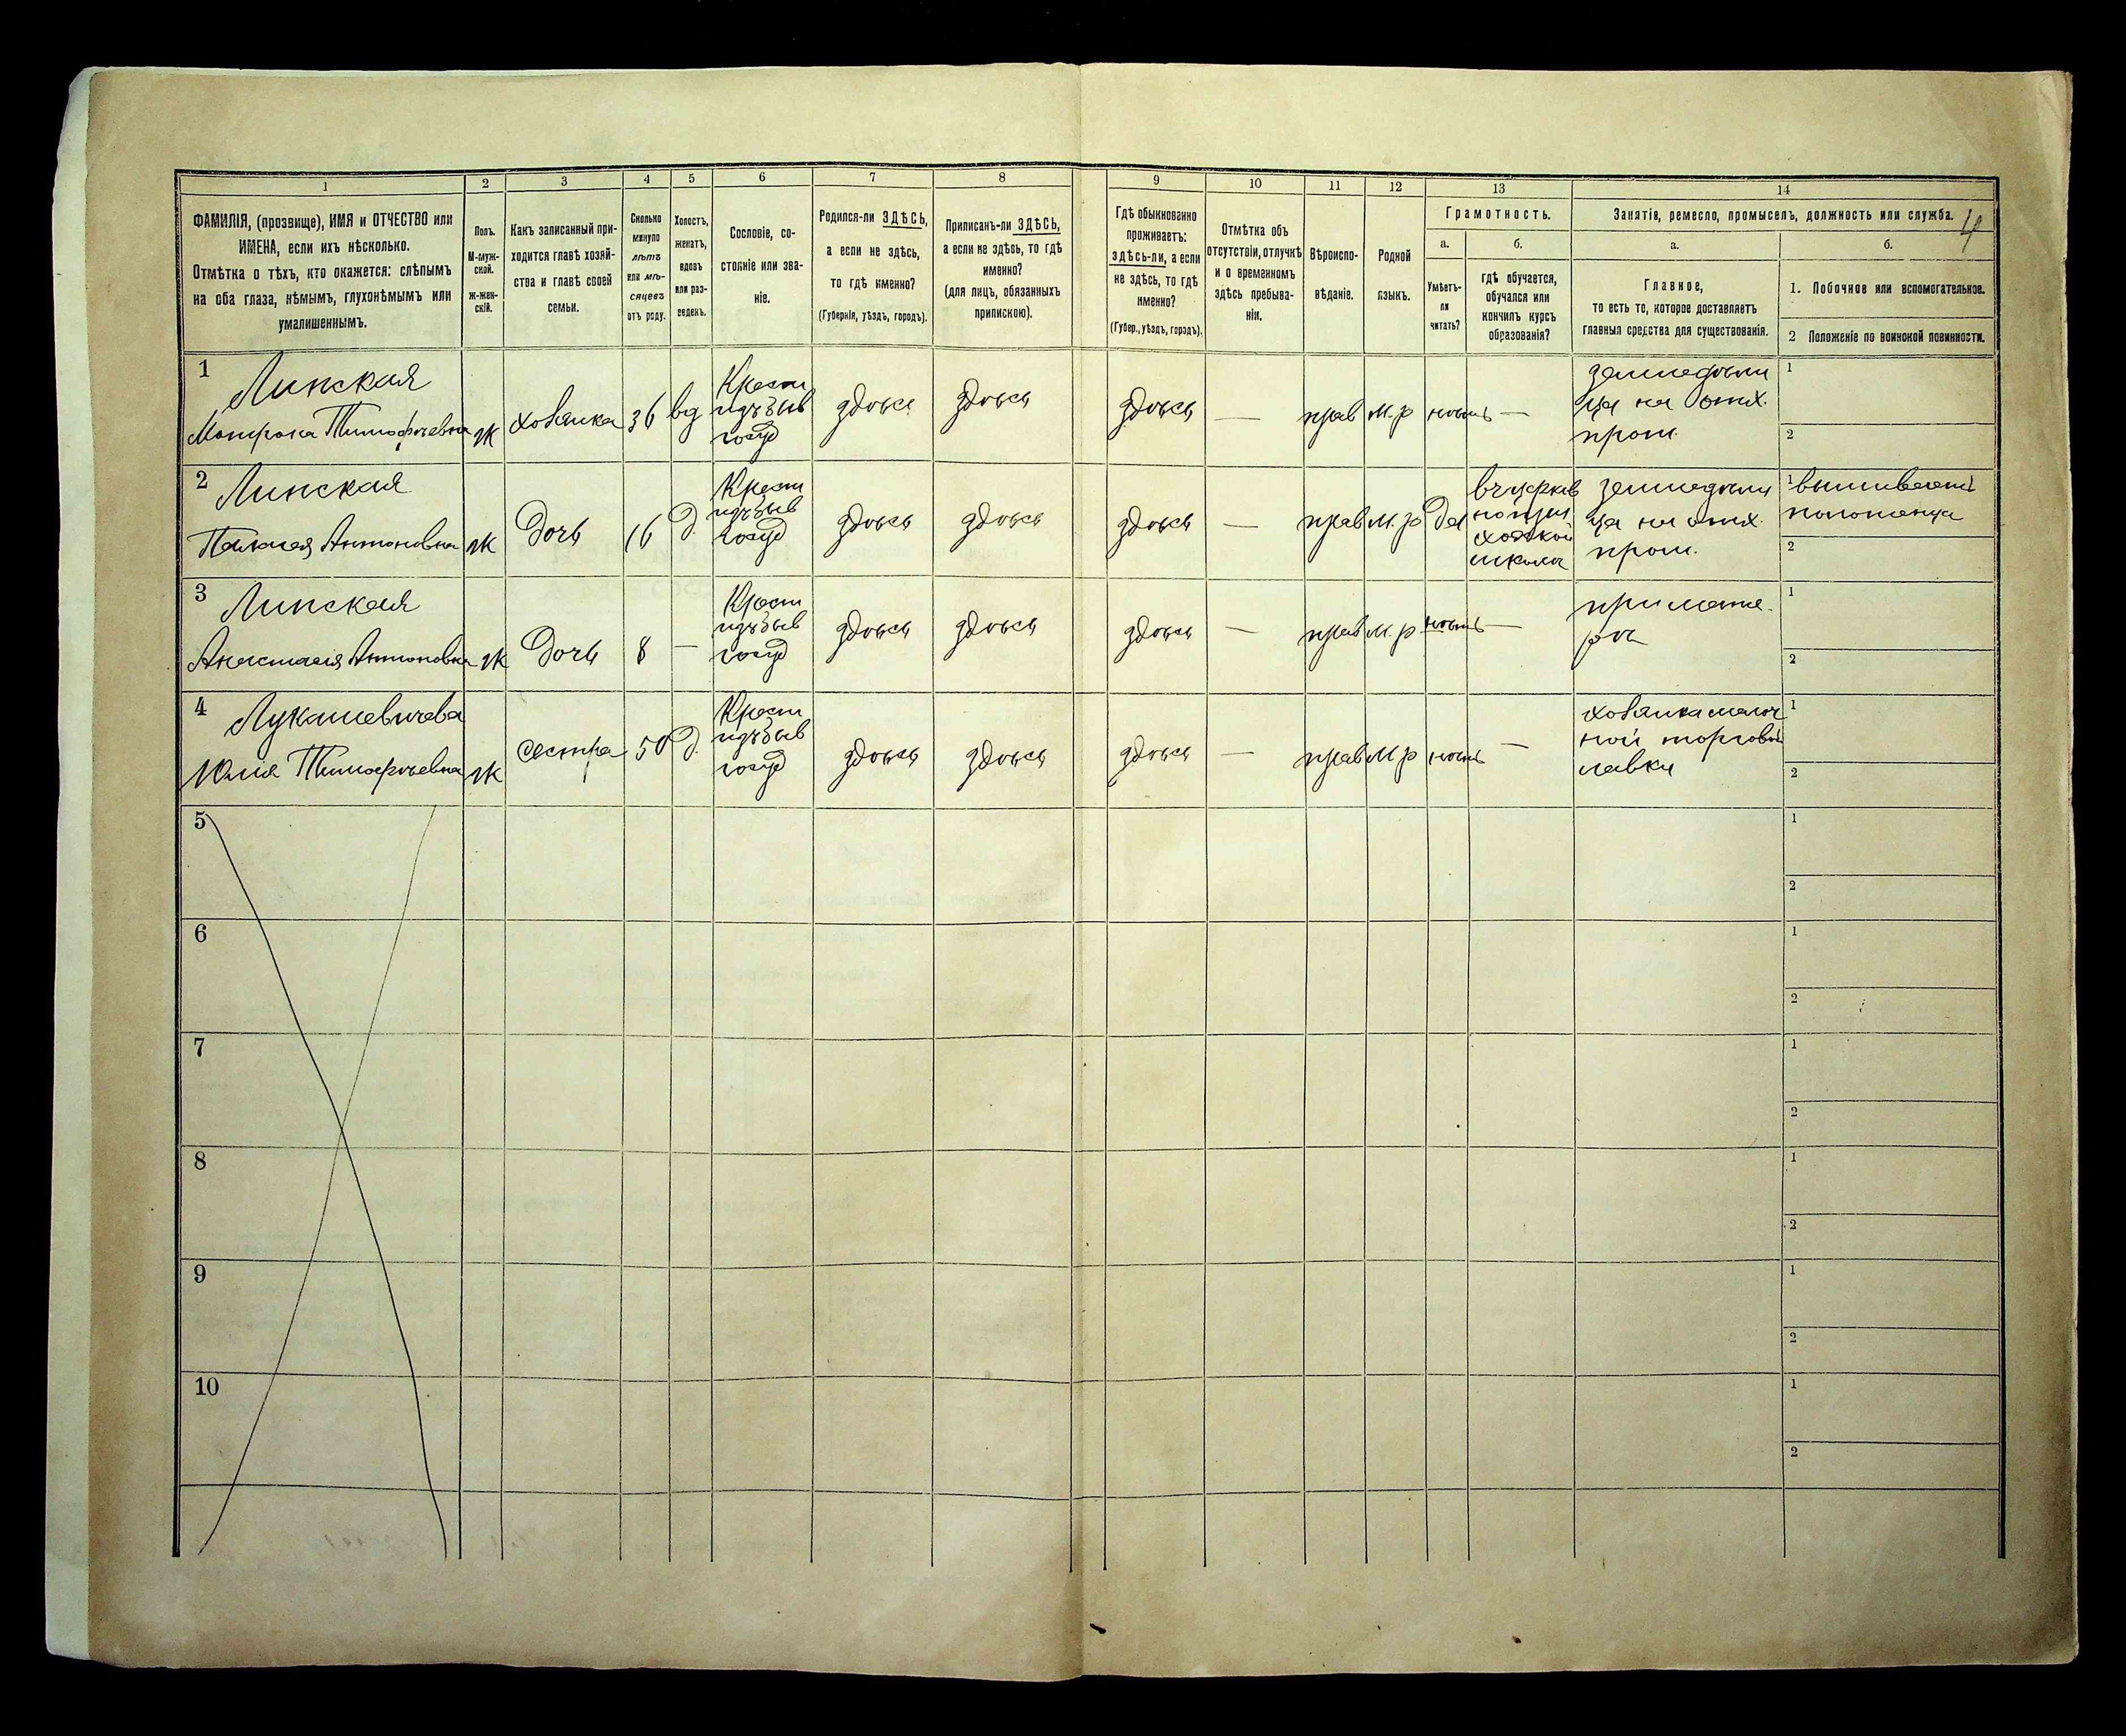 1 2 3 4 5 6 7 8 9 10 11 12 13 14
ФАМИЛІЯ, (прозвище), ИМЯ и ОТЧЕСТВО или
ИМЕНА, если ихъ нѣсколько.
Отмѣтка о тѣхъ, кто окажется: слѣпымъ
на оба глаза, нѣмымъ, глухонѣмымъ или
умалишеннымъ.
Полъ.
М-муж-
ской.
ж-жен-
скій.
Какъ записанный при-
ходится главѣ хозяй-
ства и главѣ своей
семьи.
Сколько
минуло
лѣтъ
или мѣ-
сяцевъ
отъ роду.
Холостъ,
женатъ,
вдовъ
или раз-
веденъ.
Сословіе, со-
стояніе или зва-
ніе.
Родился-ли ЗДѢСЬ,
а если не здѣсь,
то гдѣ именно?
(Губернія, уѣздъ, городъ).
Приписанъ-ли ЗДѢСЬ,
а если не здѣсь, то гдѣ
именно?
(для лицъ, обязанныхъ
припискою).
Гдѣ обыкновенно
проживаетъ:
здѣсь-ли, а если
не здѣсь, то гдѣ
именно?
(Губер., уѣздъ, городъ).
Отмѣтка объ
отсутствіи, отлучкѣ
и о временномъ
здѣсь пребыва-
ніи.
Вѣроиспо-
вѣданіе.
Родной
языкъ.
Грамотность.
а.
Умѣетъ-
ли
читать?
б.
гдѣ обучается,
обучался или
кончилъ курсъ
образованія?
Занятія, ремесло, промыселъ, должность или служба.
4
а.
Главное,
то есть то, которое доставляетъ
главныя средства для существованія.
б.
1. Побочное или вспомогательное.
2 Положеніе по воинской повинности.
1
Липская
Матрона Тимофѣевна
ж
хозяйка
36
вд
Крест
изъ быв
госуд
здѣсь
здѣсь
здѣсь
—
прав
м.р
нѣтъ
—
земледѣли
ца на
1
2
2
Липская
Антоновна
ж
Дочь
16
д.
Крест
изъ быв
госуд
здѣсь
здѣсь
здѣсь
—
прав
м.р
да
въ церков
но прих
школѣ
земледѣли
ца на
1 вышиваетъ
полотенца
2
3
Липская
Анастасія Антоновна
ж
Дочь
8
—
Крест
изъ быв
госуд
здѣсь
здѣсь
здѣсь
—
прав
м.р
нѣтъ
—
при мате-
ри
1
2
4
Лукашевичева
Юлія Тимофѣевна
ж
сестра
50
д.
Крест
изъ быв
госуд
здѣсь
здѣсь
здѣсь
—
прав
м.р
нѣтъ
—
хозяйка мелоч
ной торгов
лавки
1
2
5
1
2
6
1
2
7
1
2
8
1
2
9
1
2
10
1
2